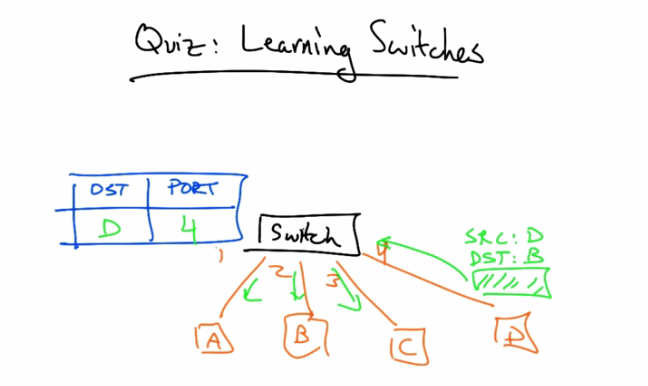 Quiz: Learning Switches
DST PORT
D 4
Switch
SRC: D
DST: B
1 2 3 4
A B C D